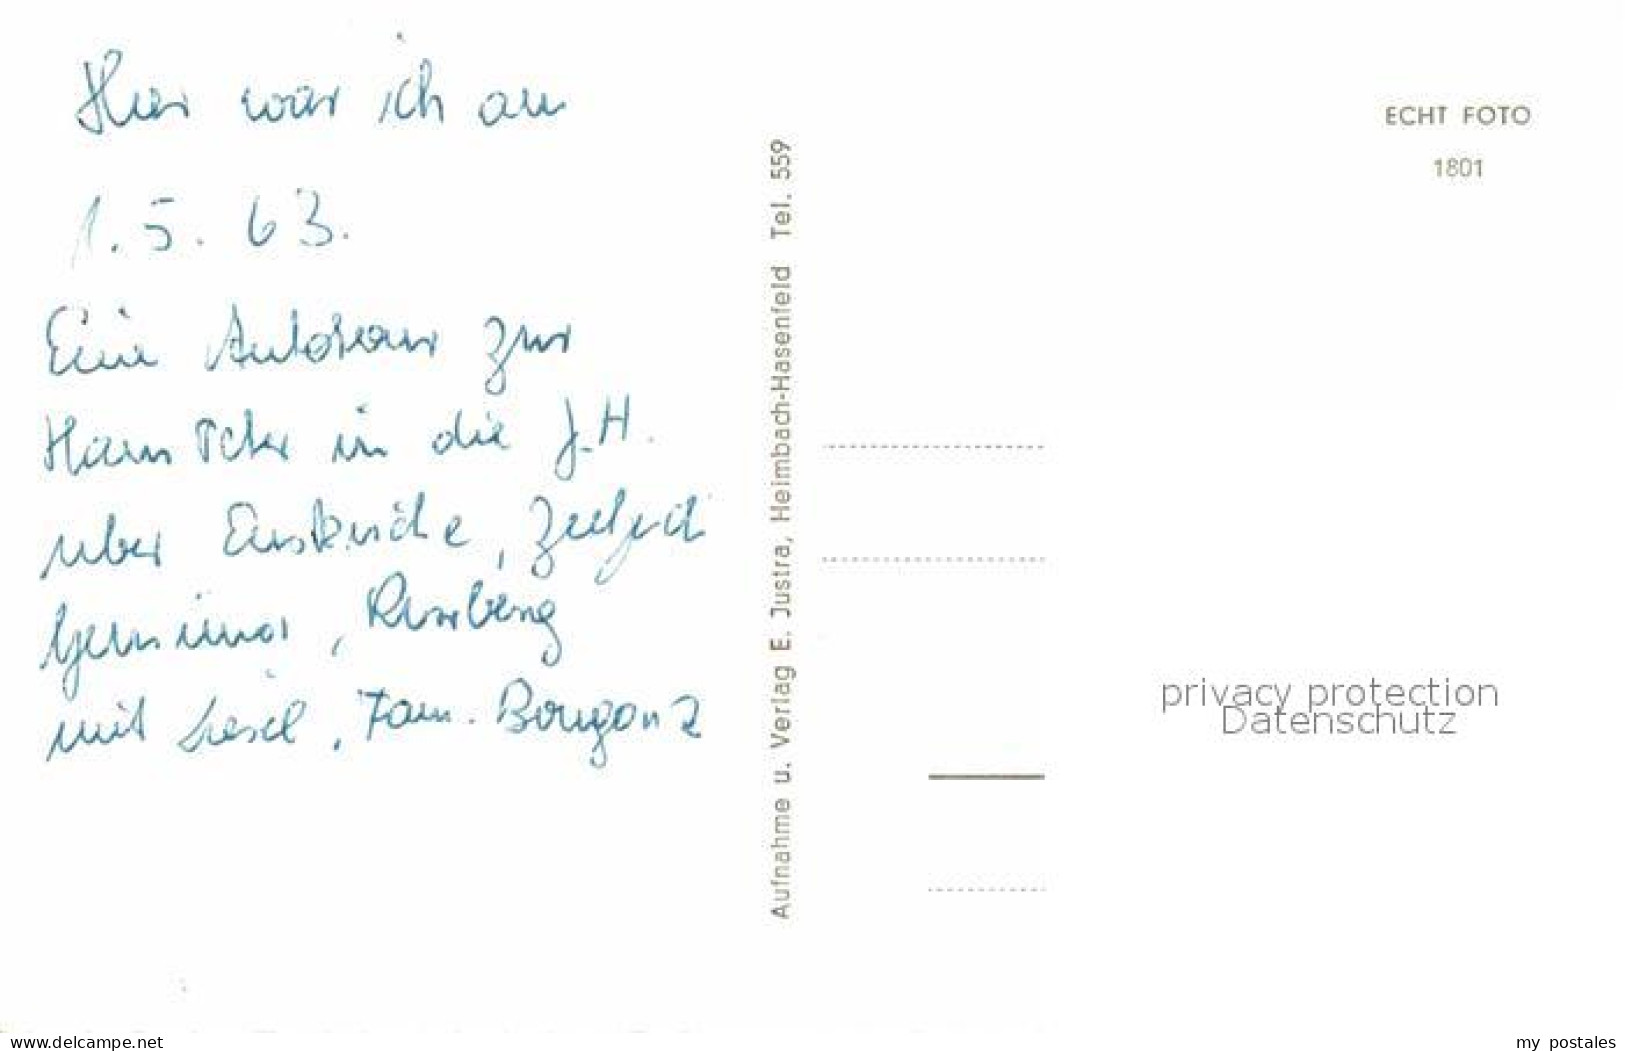 Hier war ich am
1.5.63.
Eine Autotour zur
in die J.H.
über Euskirchen, Zülpich
Gemünd, Rurberg
mit Liesel, Fam. Bongartz
Aufnahme u. Verlag E. Justra, Heimbach-Hasenfeld Tel. 559
ECHT FOTO
1801
privacy protection
Datenschutz
www.delcampe.net
my_postales